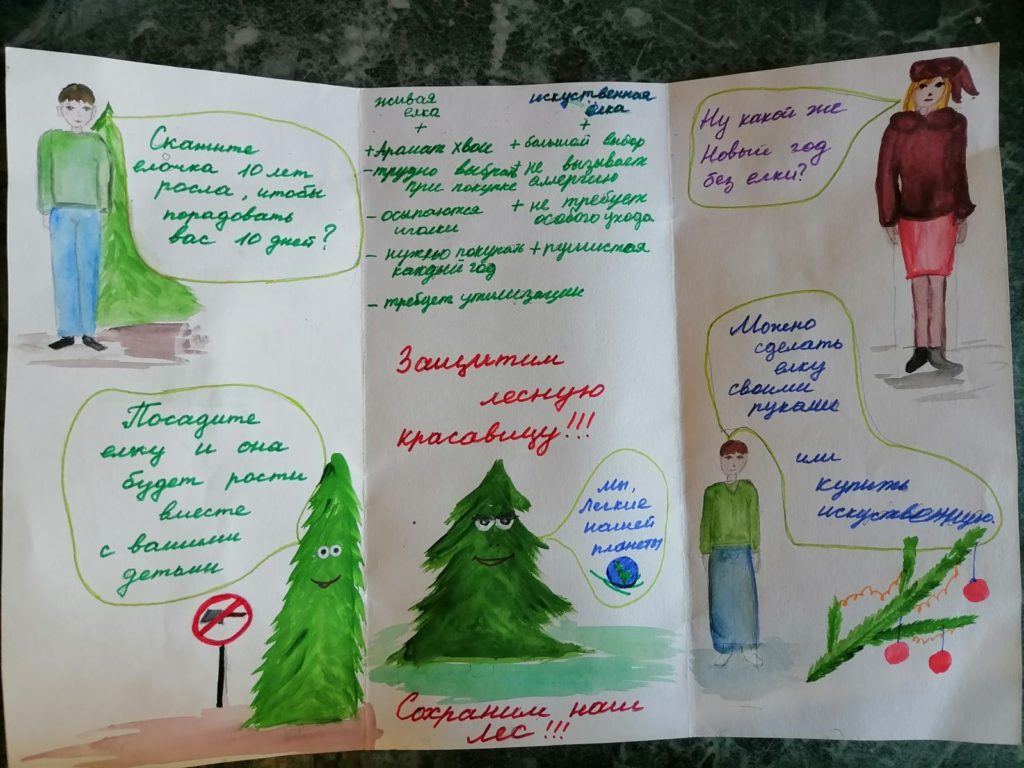 Скажите
елочка 10 лет
росла, чтобы
порадовать
вас 10 дней?
Посадите
елку и она
будет рости
вместе
с вашими
детьми
живая
елка
+
+ Аромат хвои
- трудно выбрать
при покупке
- осыпаются
иголки
- нужно покупать
каждый год
- требует утилизации
искуственная
ёлка
+
+ большой выбор
Не вызывает
аллергию
+ не требует
особого ухода
+ пушистая
Защитим
лесную
красавицу!!!
мы,
легкие
нашей
планеты
Сохраним наш
лес!!!
Ну какой же
Новый год
без елки?
Можно
сделать
елку
своими
руками
или
купить
искуственную.